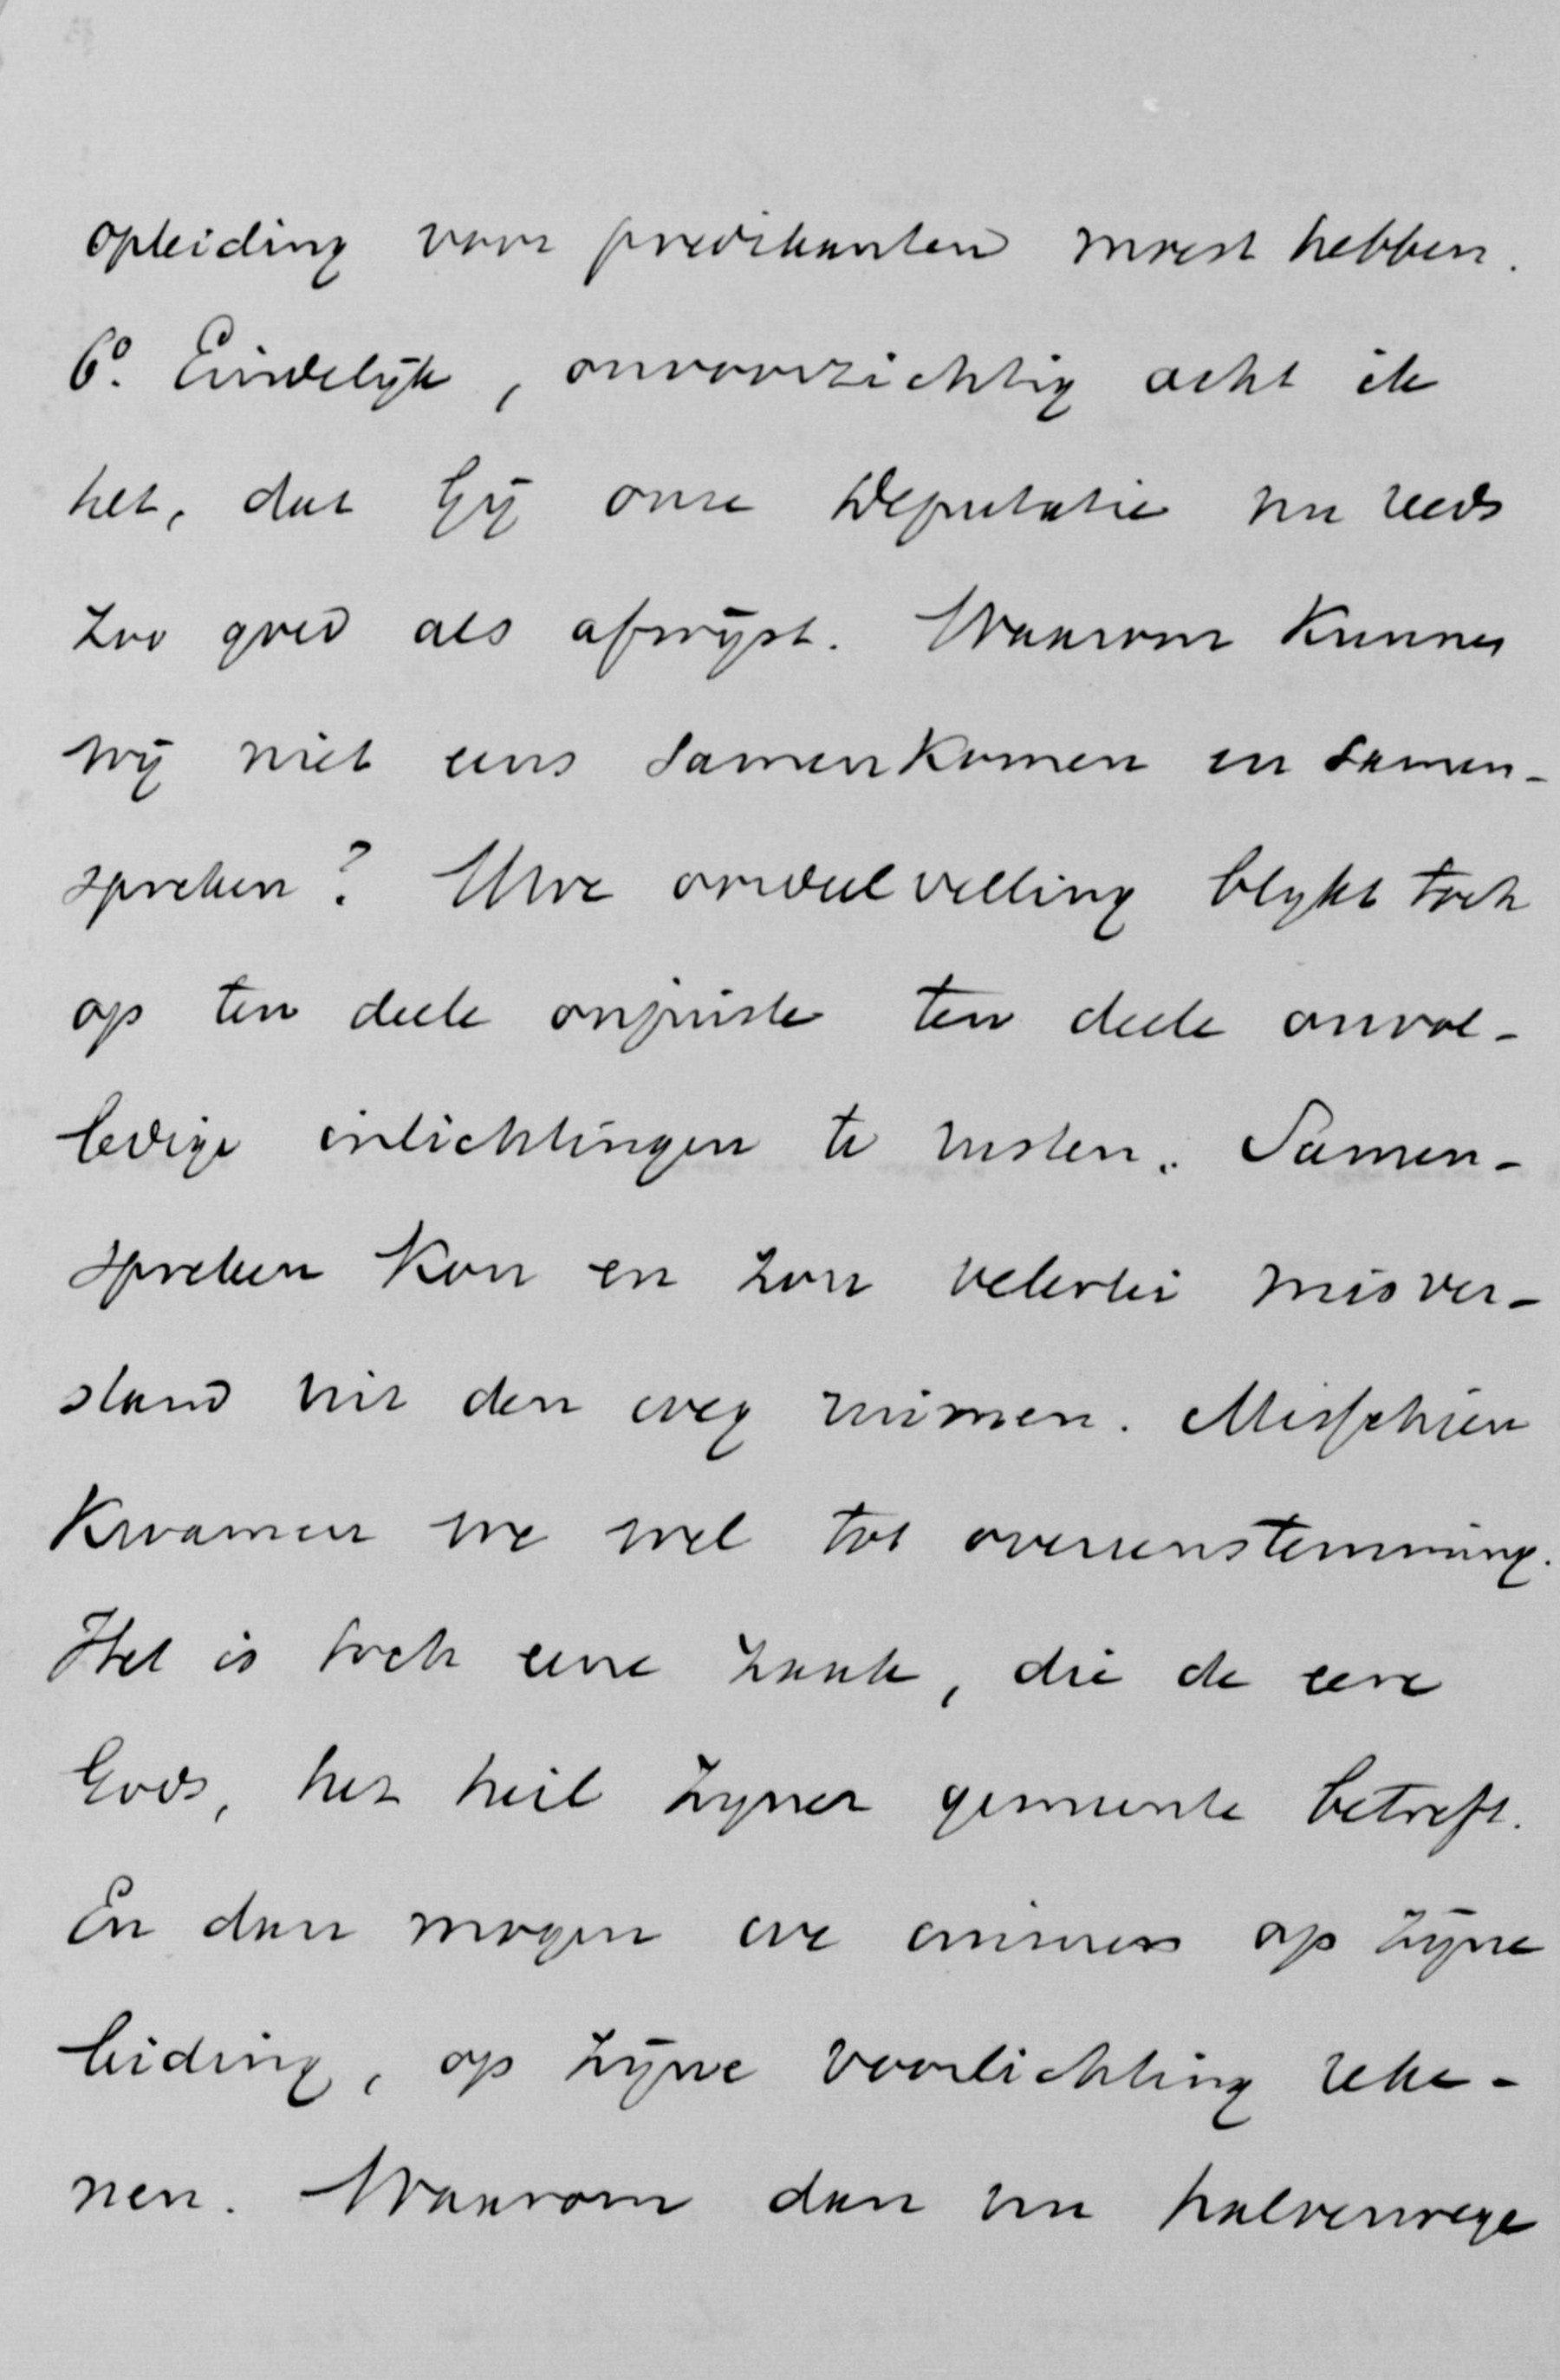 opleiding voor predikanten moest hebben.
6º. Eindelijk, onvoorzichtig acht ik
het, dat Gij onze Deputatie nu reeds
zoo goed als afwijst. Waarom kunnen
wij niet eens samenkomen en samen-
spreken? Uwe oordeelvelling blijkt toch
op ten deele onjuiste ten deele onvol-
ledige inlichtingen te rusten. Samen-
spreken kon en zou velerlei misver-
stand uit den weg ruimen. Misschien
kwamen we wel tot overeenstemming.
Het is toch eene zaak, die de eere
Gods, het heil zijner gemeente betreft.
En dan mogen we immers op zijne
leiding, op zijne voorlichting reke-
nen. Waarom dan nu halverwege